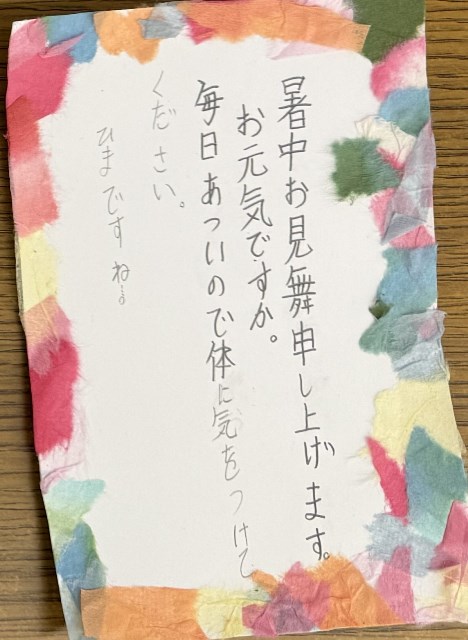 暑中お見舞申し上げます。
お元気ですか。
毎日あついので体に気をつけて
ください。
ひまですねぇ